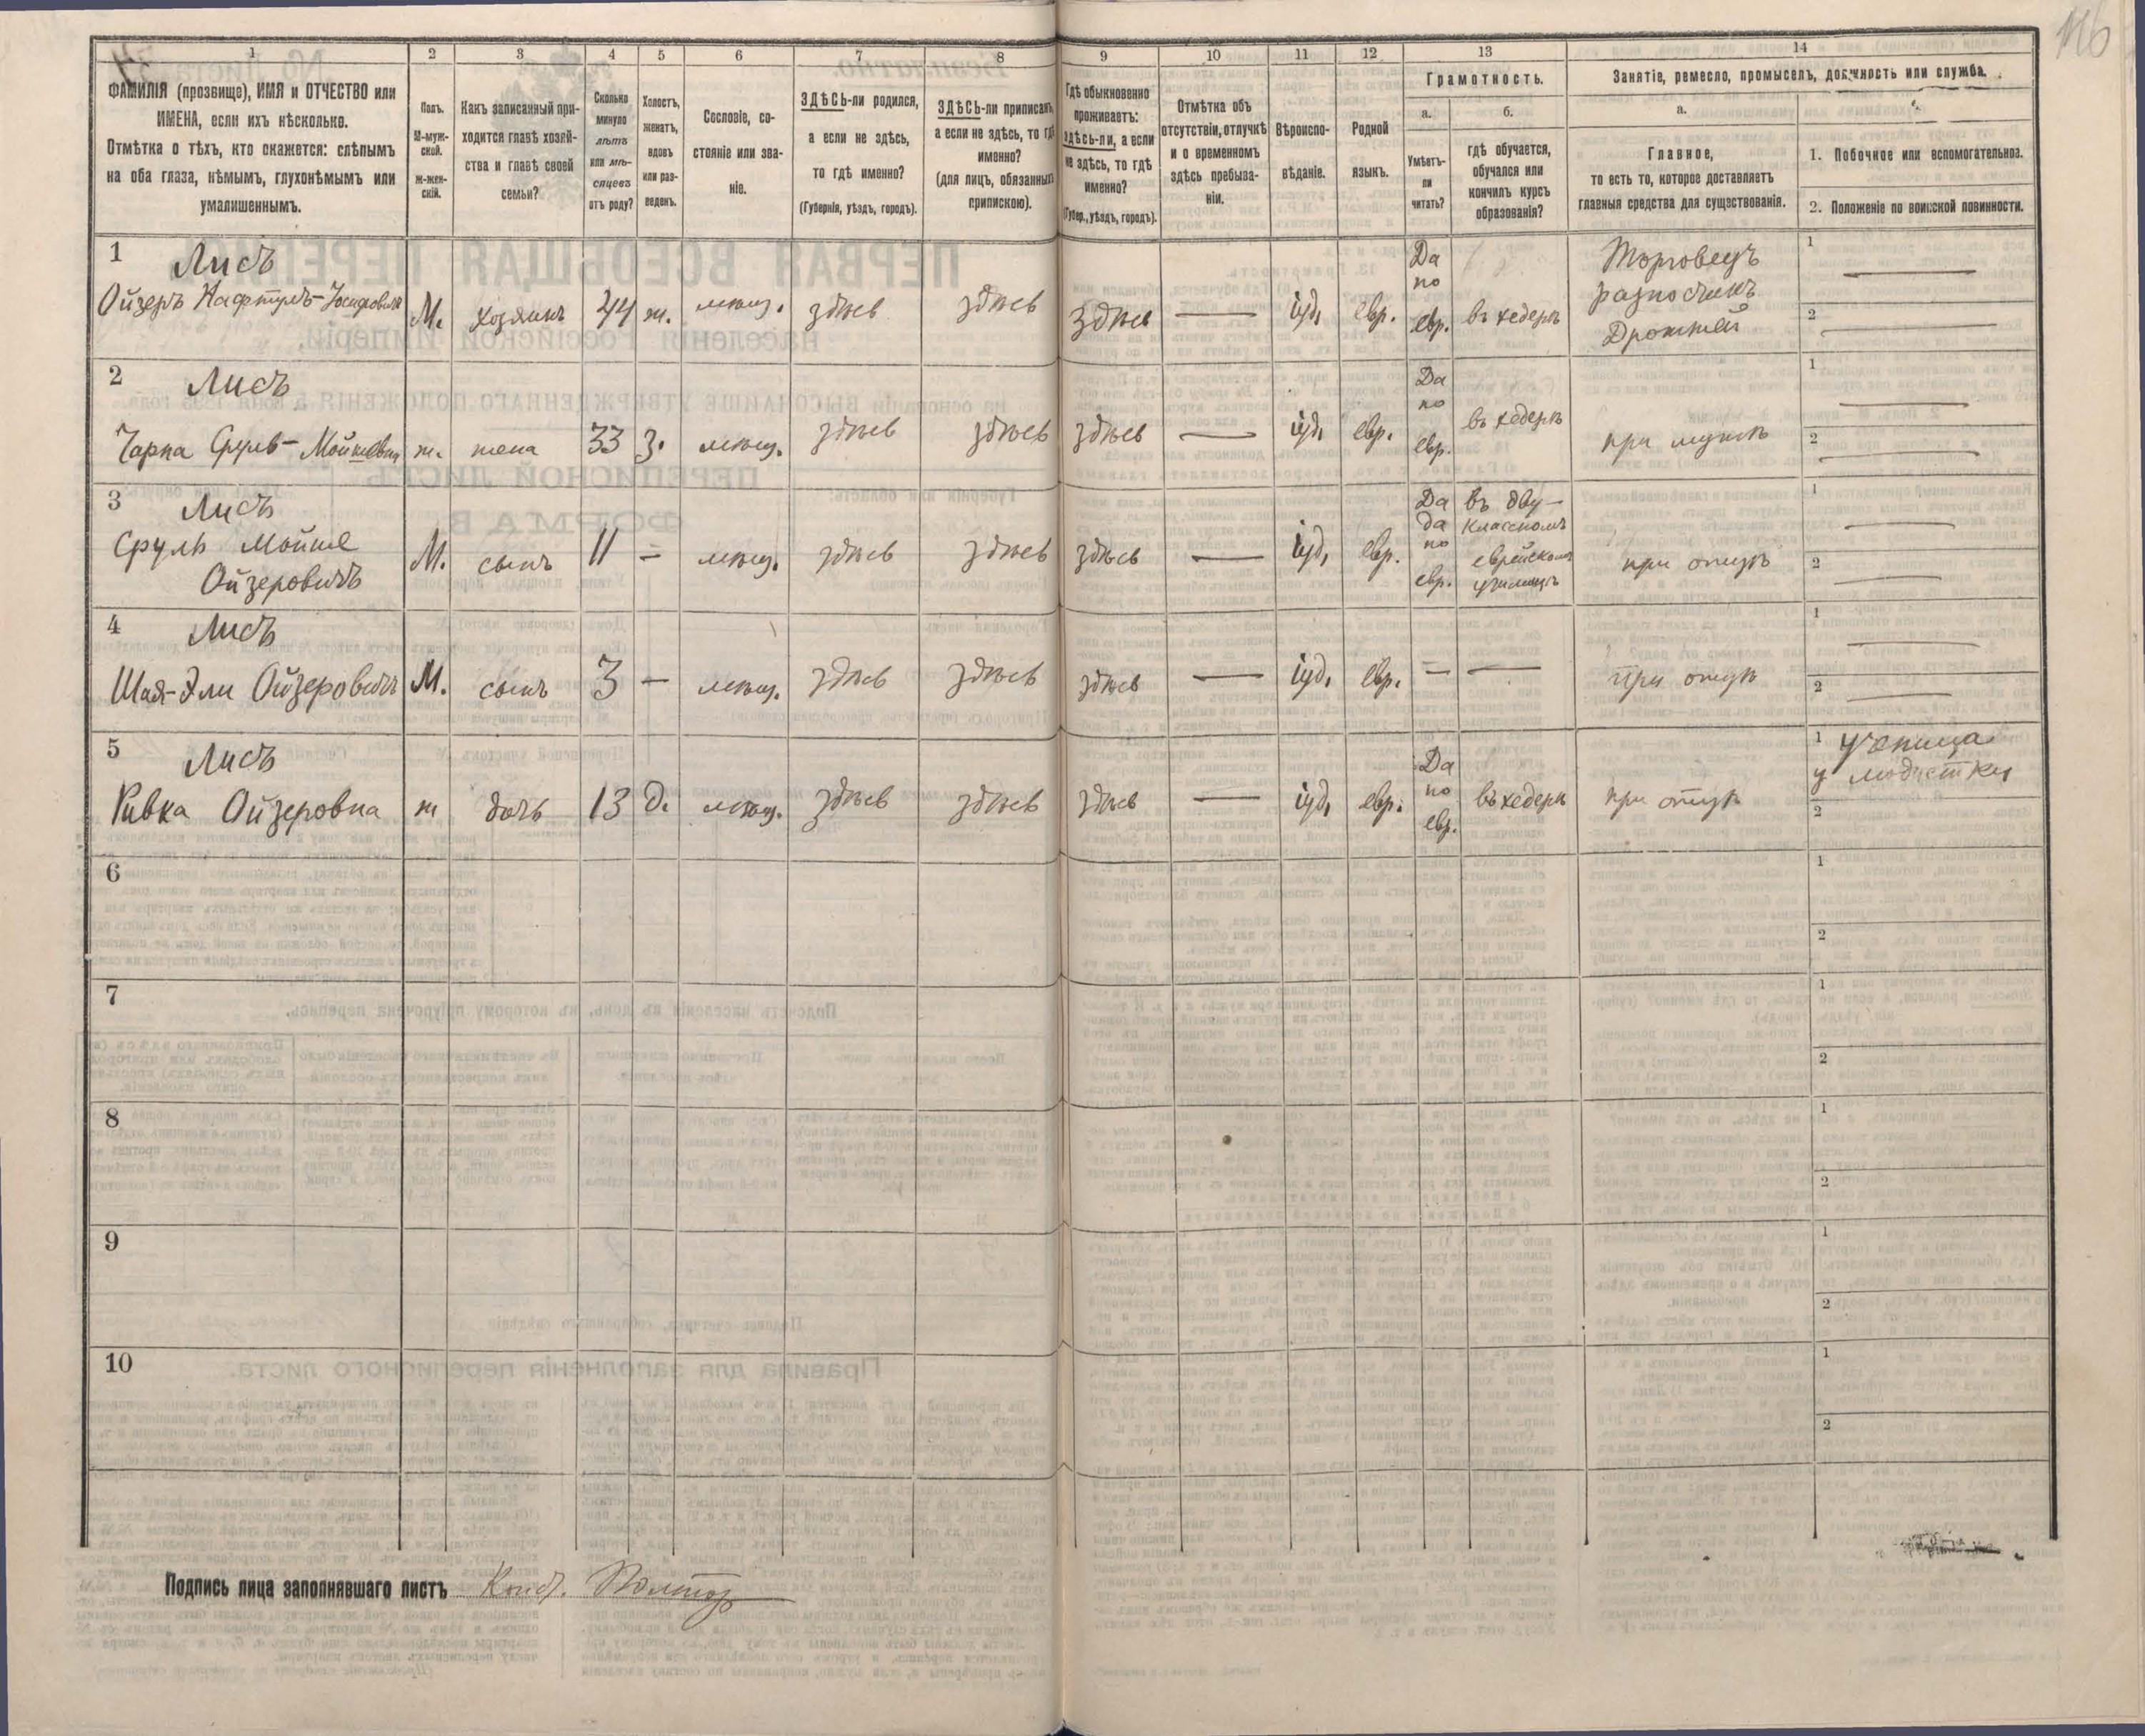 116
1 2 3 4 5 6 7 8 9 10 11 12 13 14
ФАМИЛІЯ (прозвище), ИМЯ и ОТЧЕСТВО или
ИМЕНА, если ихъ нѣсколько.
Отмѣтка о тѣхъ, кто окажется: слѣпымъ
на оба глаза, нѣмымъ, глухонѣмымъ или
умалишеннымъ.
Полъ.
М-муж-
ской.
Ж-жен-
скій.
Какъ записанный при-
ходится главѣ хозяй-
ства и главѣ своей
семьи?
Сколько
минуло
лѣтъ
или мѣ-
сяцевъ
отъ роду?
Холостъ,
женатъ,
вдовъ
или раз-
веденъ.
Сословіе, со-
стояніе или зва-
ніе.
ЗДѢСЬ-ли родился,
а если не здѣсь,
то гдѣ именно?
(Губернія, уѣздъ, городъ).
ЗДѢСЬ-ли приписанъ,
а если не здѣсь, то гдѣ
именно?
(для лицъ, обязанныхъ
припискою).
Гдѣ обыкновенно
проживаетъ:
здѣсь-ли, а если
не здѣсь, то гдѣ
именно?
(Губер., уѣздъ, городъ).
Отмѣтка объ
отсутствіи, отлучкѣ
и о временномъ
здѣсь пребыва-
ніи.
Вѣроиспо-
вѣданіе.
Родной
языкъ.
Грамотность.
а.
Умѣетъ-
ли
читать?
б.
гдѣ обучается,
обучался или
кончилъ курсъ
образованія?
Занятіе, ремесло, промыселъ, должность или служба.
а.
Главное,
то есть то, которое доставляетъ
главныя средства для существованія.
1. Побочное или вспомогательное.
2. Положеніе по воинской повинности.
1 Лисъ
Ойзеръ Нафтулъ-Іосифовичъ М. хозяинъ 44 ж. мѣщ. здѣсь здѣсь здѣсь — іуд. евр.
Да
по
евр.
въ хедерѣ
Торговецъ
разносчикъ
Дрожжей
1 —
2 —
2 Лисъ
Чарна Сруль-Мойшевна ж. жена 33 з. мѣщ. здѣсь здѣсь здѣсь — іуд. евр.
Да
по
евр.
въ хедерѣ
при мужѣ
1 —
2 —
3 Лисъ
Сруль Мойше
Ойзеровичъ
М. сынъ 11 — мѣщ. здѣсь здѣсь здѣсь — іуд. евр.
Да
да
по
евр.
въ дву-
классномъ
еврейскомъ
училищѣ
при отцѣ
1 —
2 —
4 Лисъ
Шая-Эли Ойзеровичъ М. сынъ 3 — мѣщ. здѣсь здѣсь здѣсь — іуд. евр. — — при отцѣ
1 —
2 —
5 Лисъ
Ривка Ойзеровна ж дочь 13 д. мѣщ. здѣсь здѣсь здѣсь — іуд. евр.
Да
по
евр.
въ хедерѣ
при отцѣ
1 ученица
у модистки
2
6
1
2
7
1
2
8
1
2
9
1
2
10
1
2
Подпись лица заполнявшаго листъ